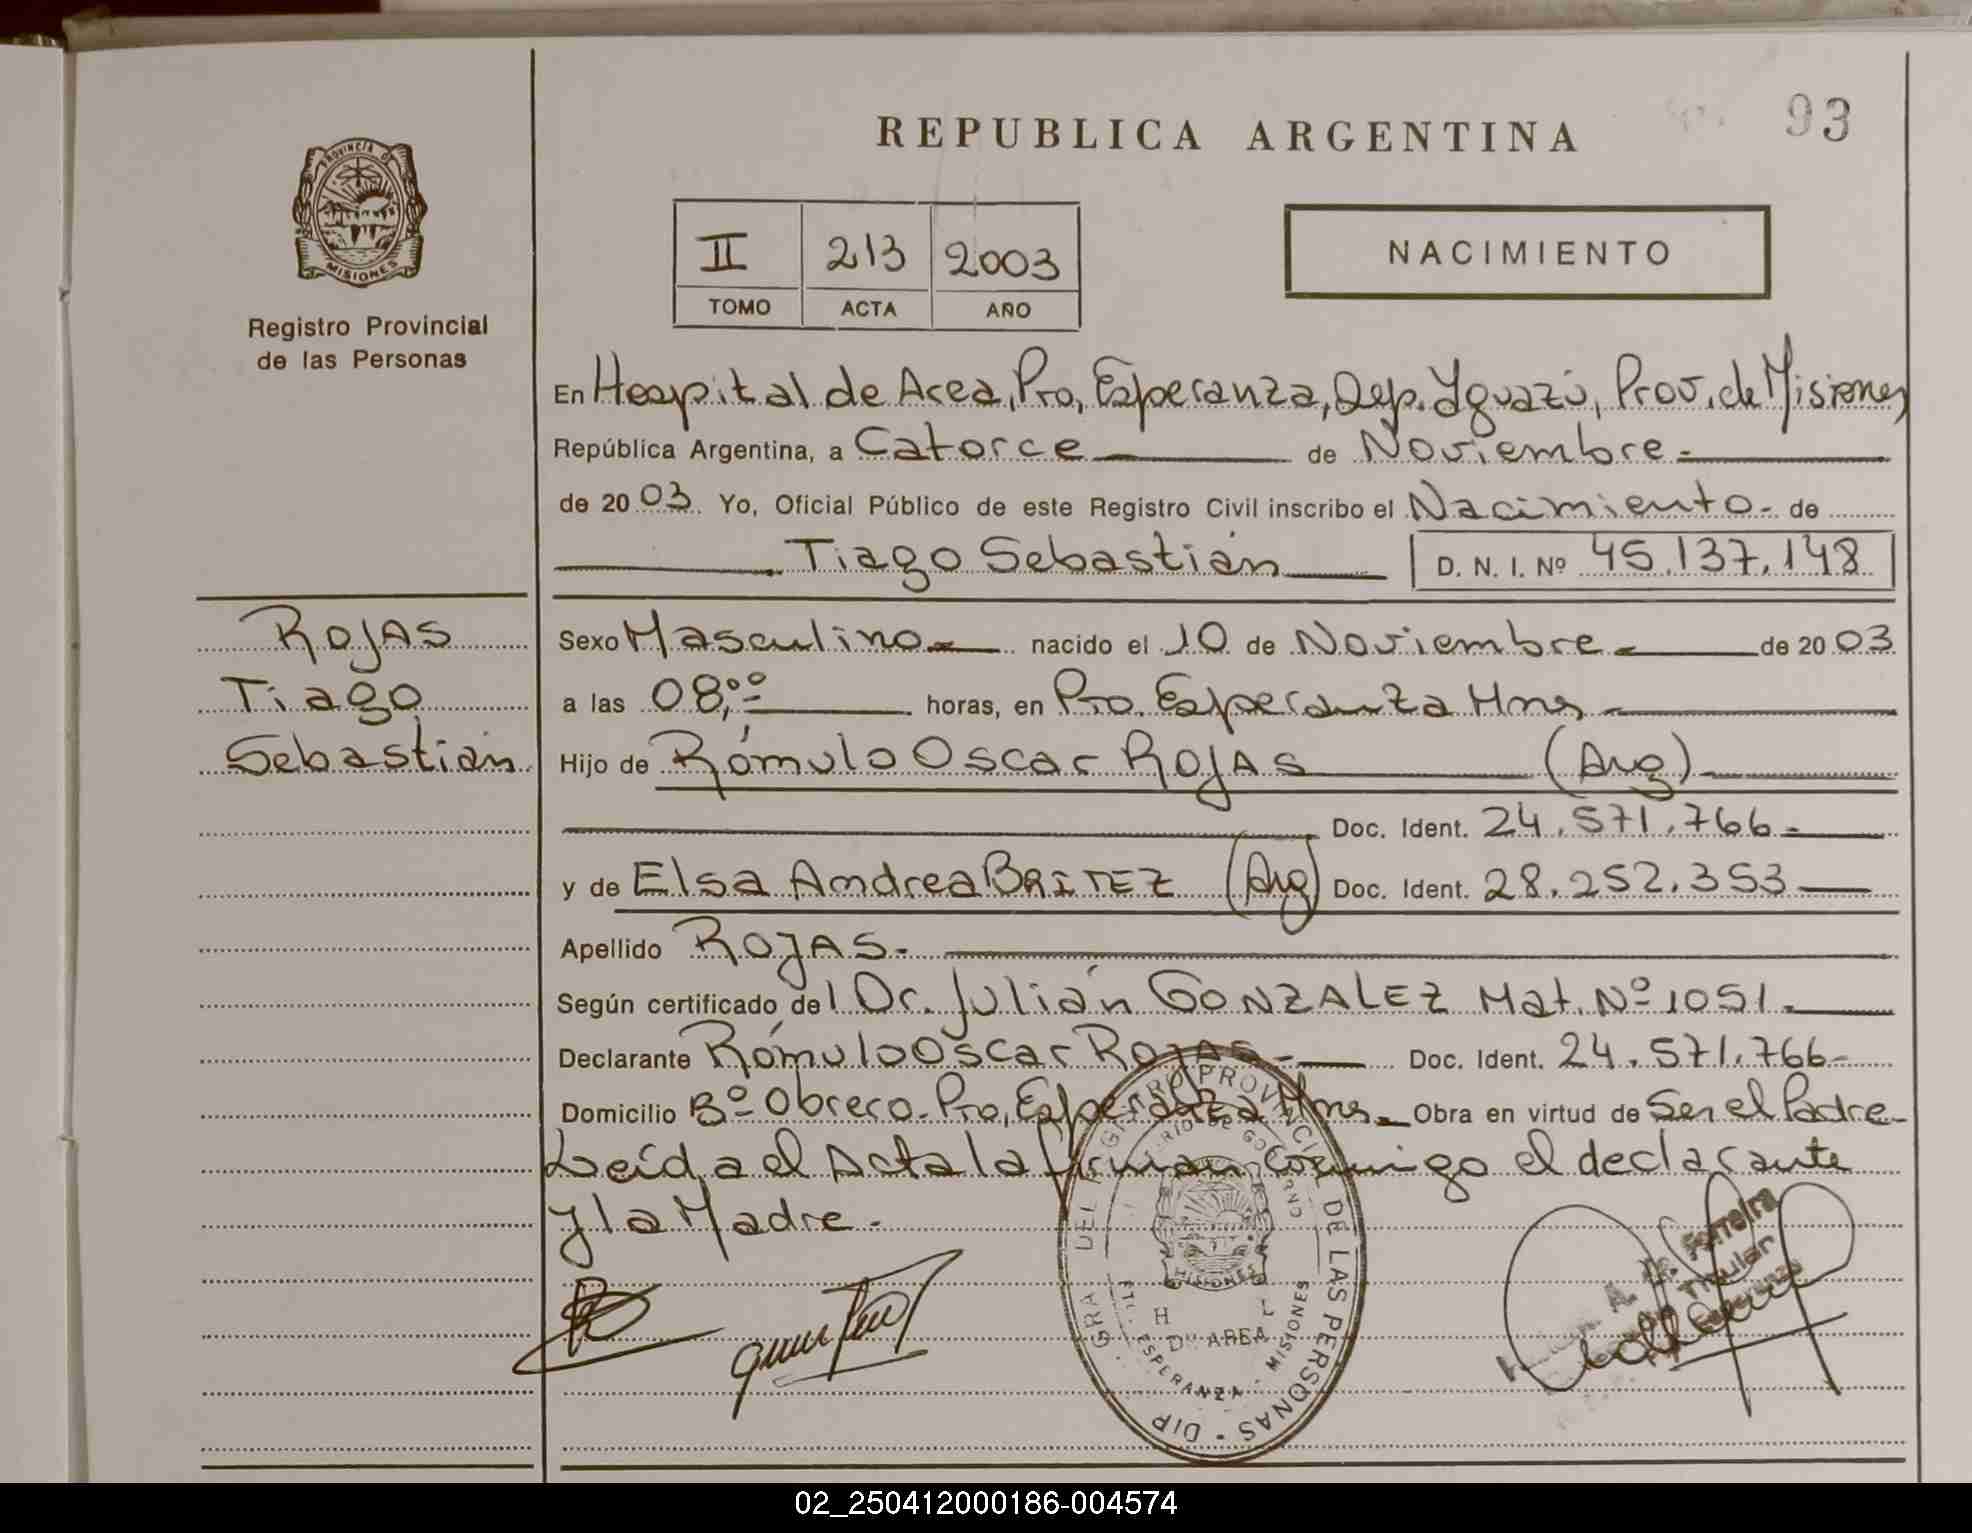 REPUBLICA ARGENTINA
93
PROVINCIA D
MISIONES
Registro Provincial
de las Personas
II 213 2003
TOMO ACTA AÑO
NACIMIENTO
En Hospital de Area, Pto, Esperanza, Dep. Yguazú, Prov. de Misiones
República Argentina, a Catorce de Noviembre.
de 2003. Yo, Oficial Público de este Registro Civil inscribo el Nacimiento. de
Tiago Sebastián D. N. I. Nº 45.137.148
Rojas
Tiago
Sebastián
Sexo Masculino nacido el 10 de Noviembre de 2003
a las 08,00 horas, en Pto. Esperanza Mnes
Hijo de Rómulo Oscar ROJAS (Arg)
Doc. Ident. 24.571.766
y de Elsa Andrea BRITEZ (Arg) Doc. Ident. 28.252.353
Apellido ROJAS.
Según certificado del Dr. Julián GONZALEZ Mat. Nº 1051.
Declarante Rómulo Oscar ROJAS Doc. Ident. 24.571.766
Domicilio Bº Obrero. Pto, Esperanza Mnes Obra en virtud de Ser el Padre
Leída el Acta la firman conmigo el declarante
y la Madre.
DIP GRA DEL REGISTRO PROVINCIAL DE LAS PERSONAS
MISIONES
AREA
ESPERANZA - MISIONES
Ferreira
Titular
02_250412000186-004574